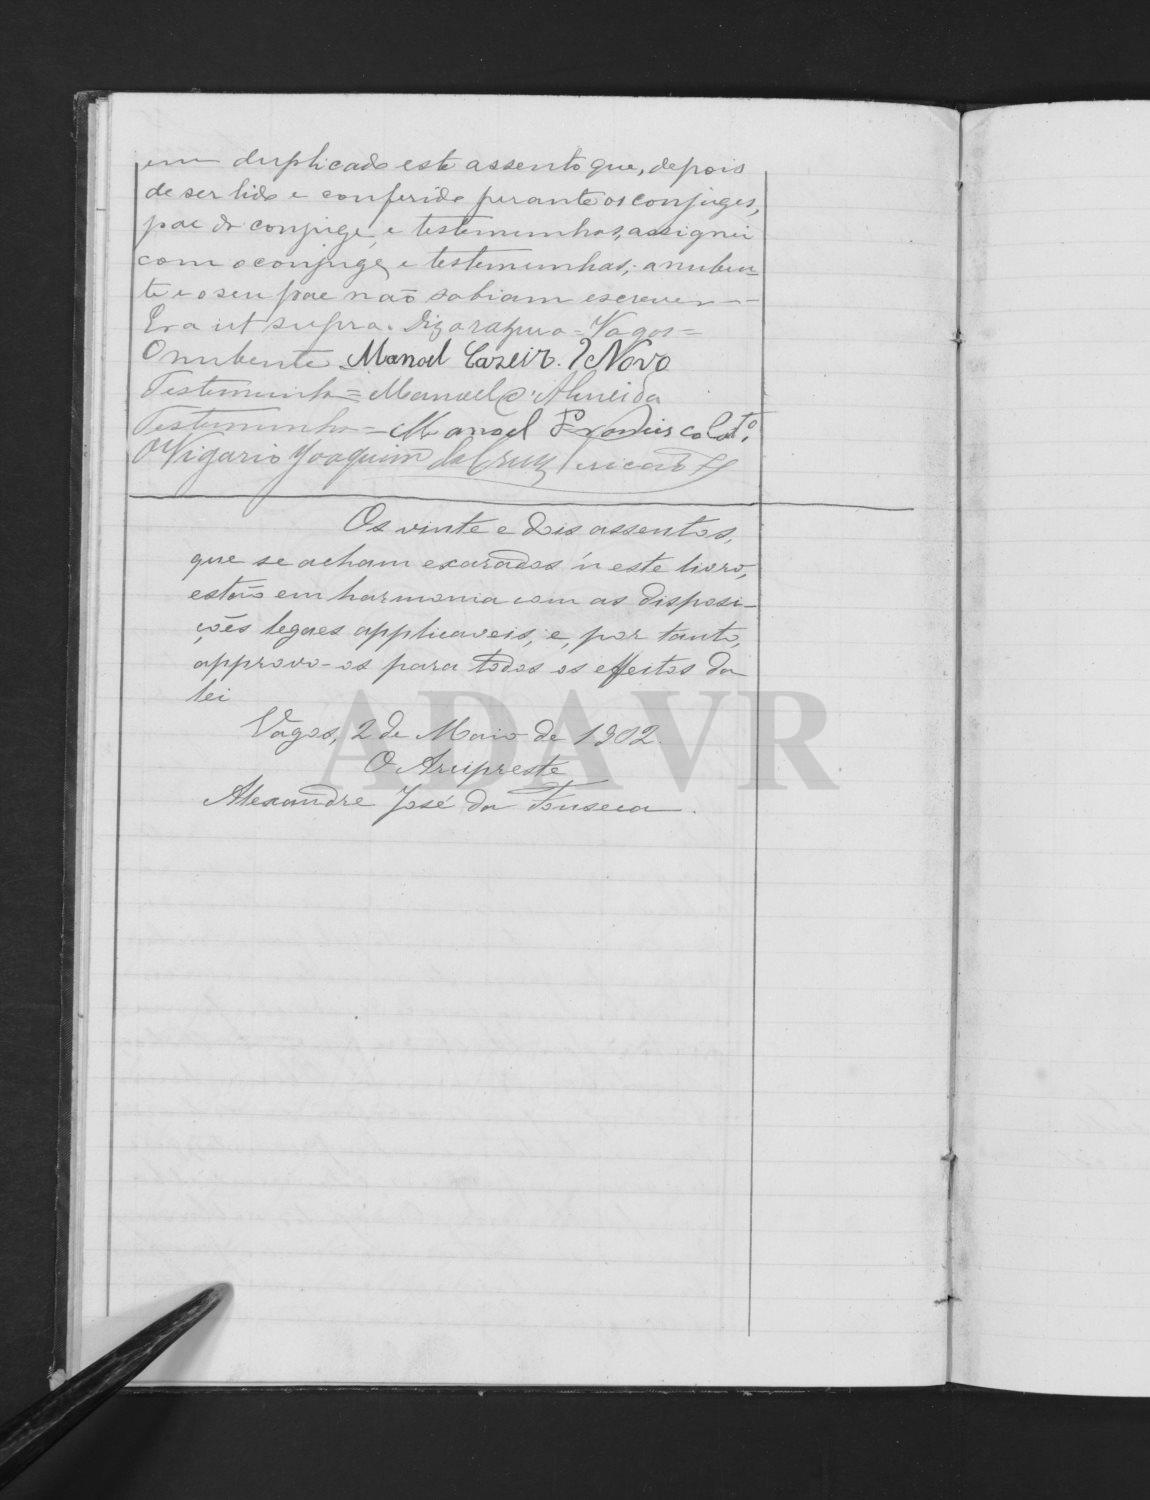 em duplicado este assento que, depois
de ser lido e conferido perante os conjuges,
pae da conjuge, e testemunhas, assignei
com o conjuge, e testemunhas; a nuben-
te e o seu pae não sabiam escrever --
Era ut supra. Diz a razura = Vagos =
O nubente Manoel Novo
Testemunha = Manuel d'Almeida
Testemunha = Manoel Francisco
O Vigario Joaquim da Cruz
Os vinte e dois assentos,
que se acham exarados n'este livro,
estão em harmonia com as disposi-
ções legaes applicaveis, e, por tanto,
approvo-os para todos os effeitos da
lei
Vagos, 2 de Maio de 1902.
O Arcipreste
Alexandre José da Fonseca.
ADAVR